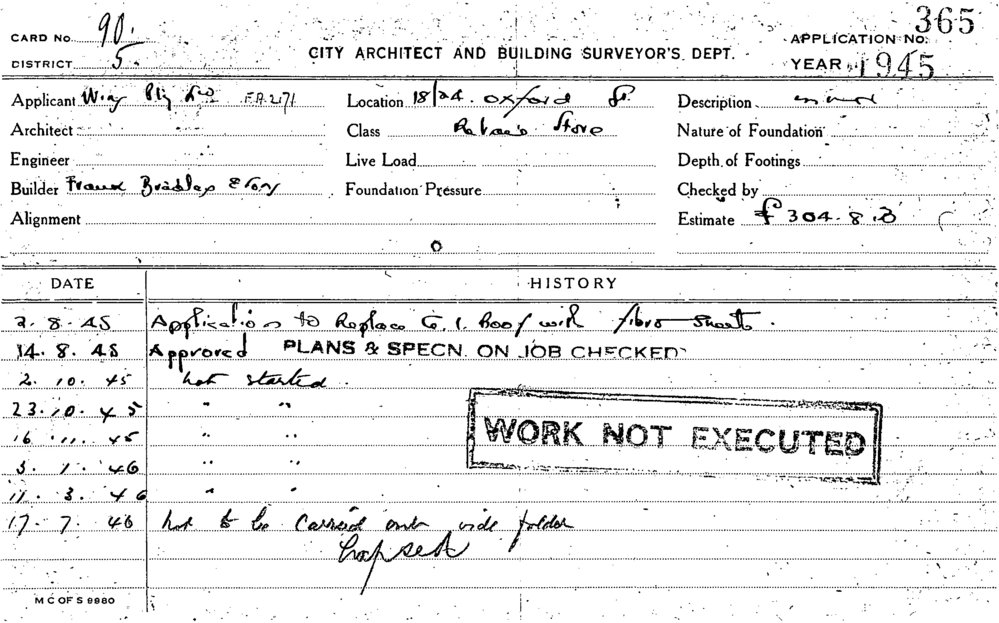 365
CARD No. 90.
CITY ARCHITECT AND BUILDING SURVEYOR'S DEPT.
APPLICATION NO.
DISTRICT 5.
YEAR 1945
Applicant Location 18/24. Oxford St. Description
Architect Class Store Nature of Foundation
Engineer Live Load Depth of Footings
Builder Frank Bradley & Son Foundation Pressure Checked by
Alignment Estimate £304.8.3
DATE HISTORY
2. 8. 45 Application to Replace G. I. Roof with fibro sheets.
14. 8. 45 Approved PLANS & SPECN. ON JOB CHECKED
2. 10. 45 not started.
23. 10. 45 " "
16 11. 45 " "
3. 1. 46 " "
11. 3. 46 " "
17. 7. 46 Not to be carried out vide folder
Lapsed
WORK NOT EXECUTED
M C OF S 9980